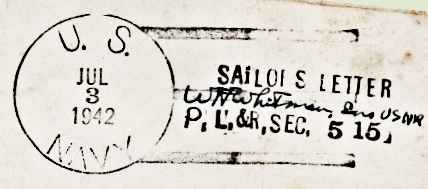 U. S.
JUL
3
1942
NAVY
SAILOR'S LETTER
W N Whitman, Ens USNR
P. L. & R, SEC. 515